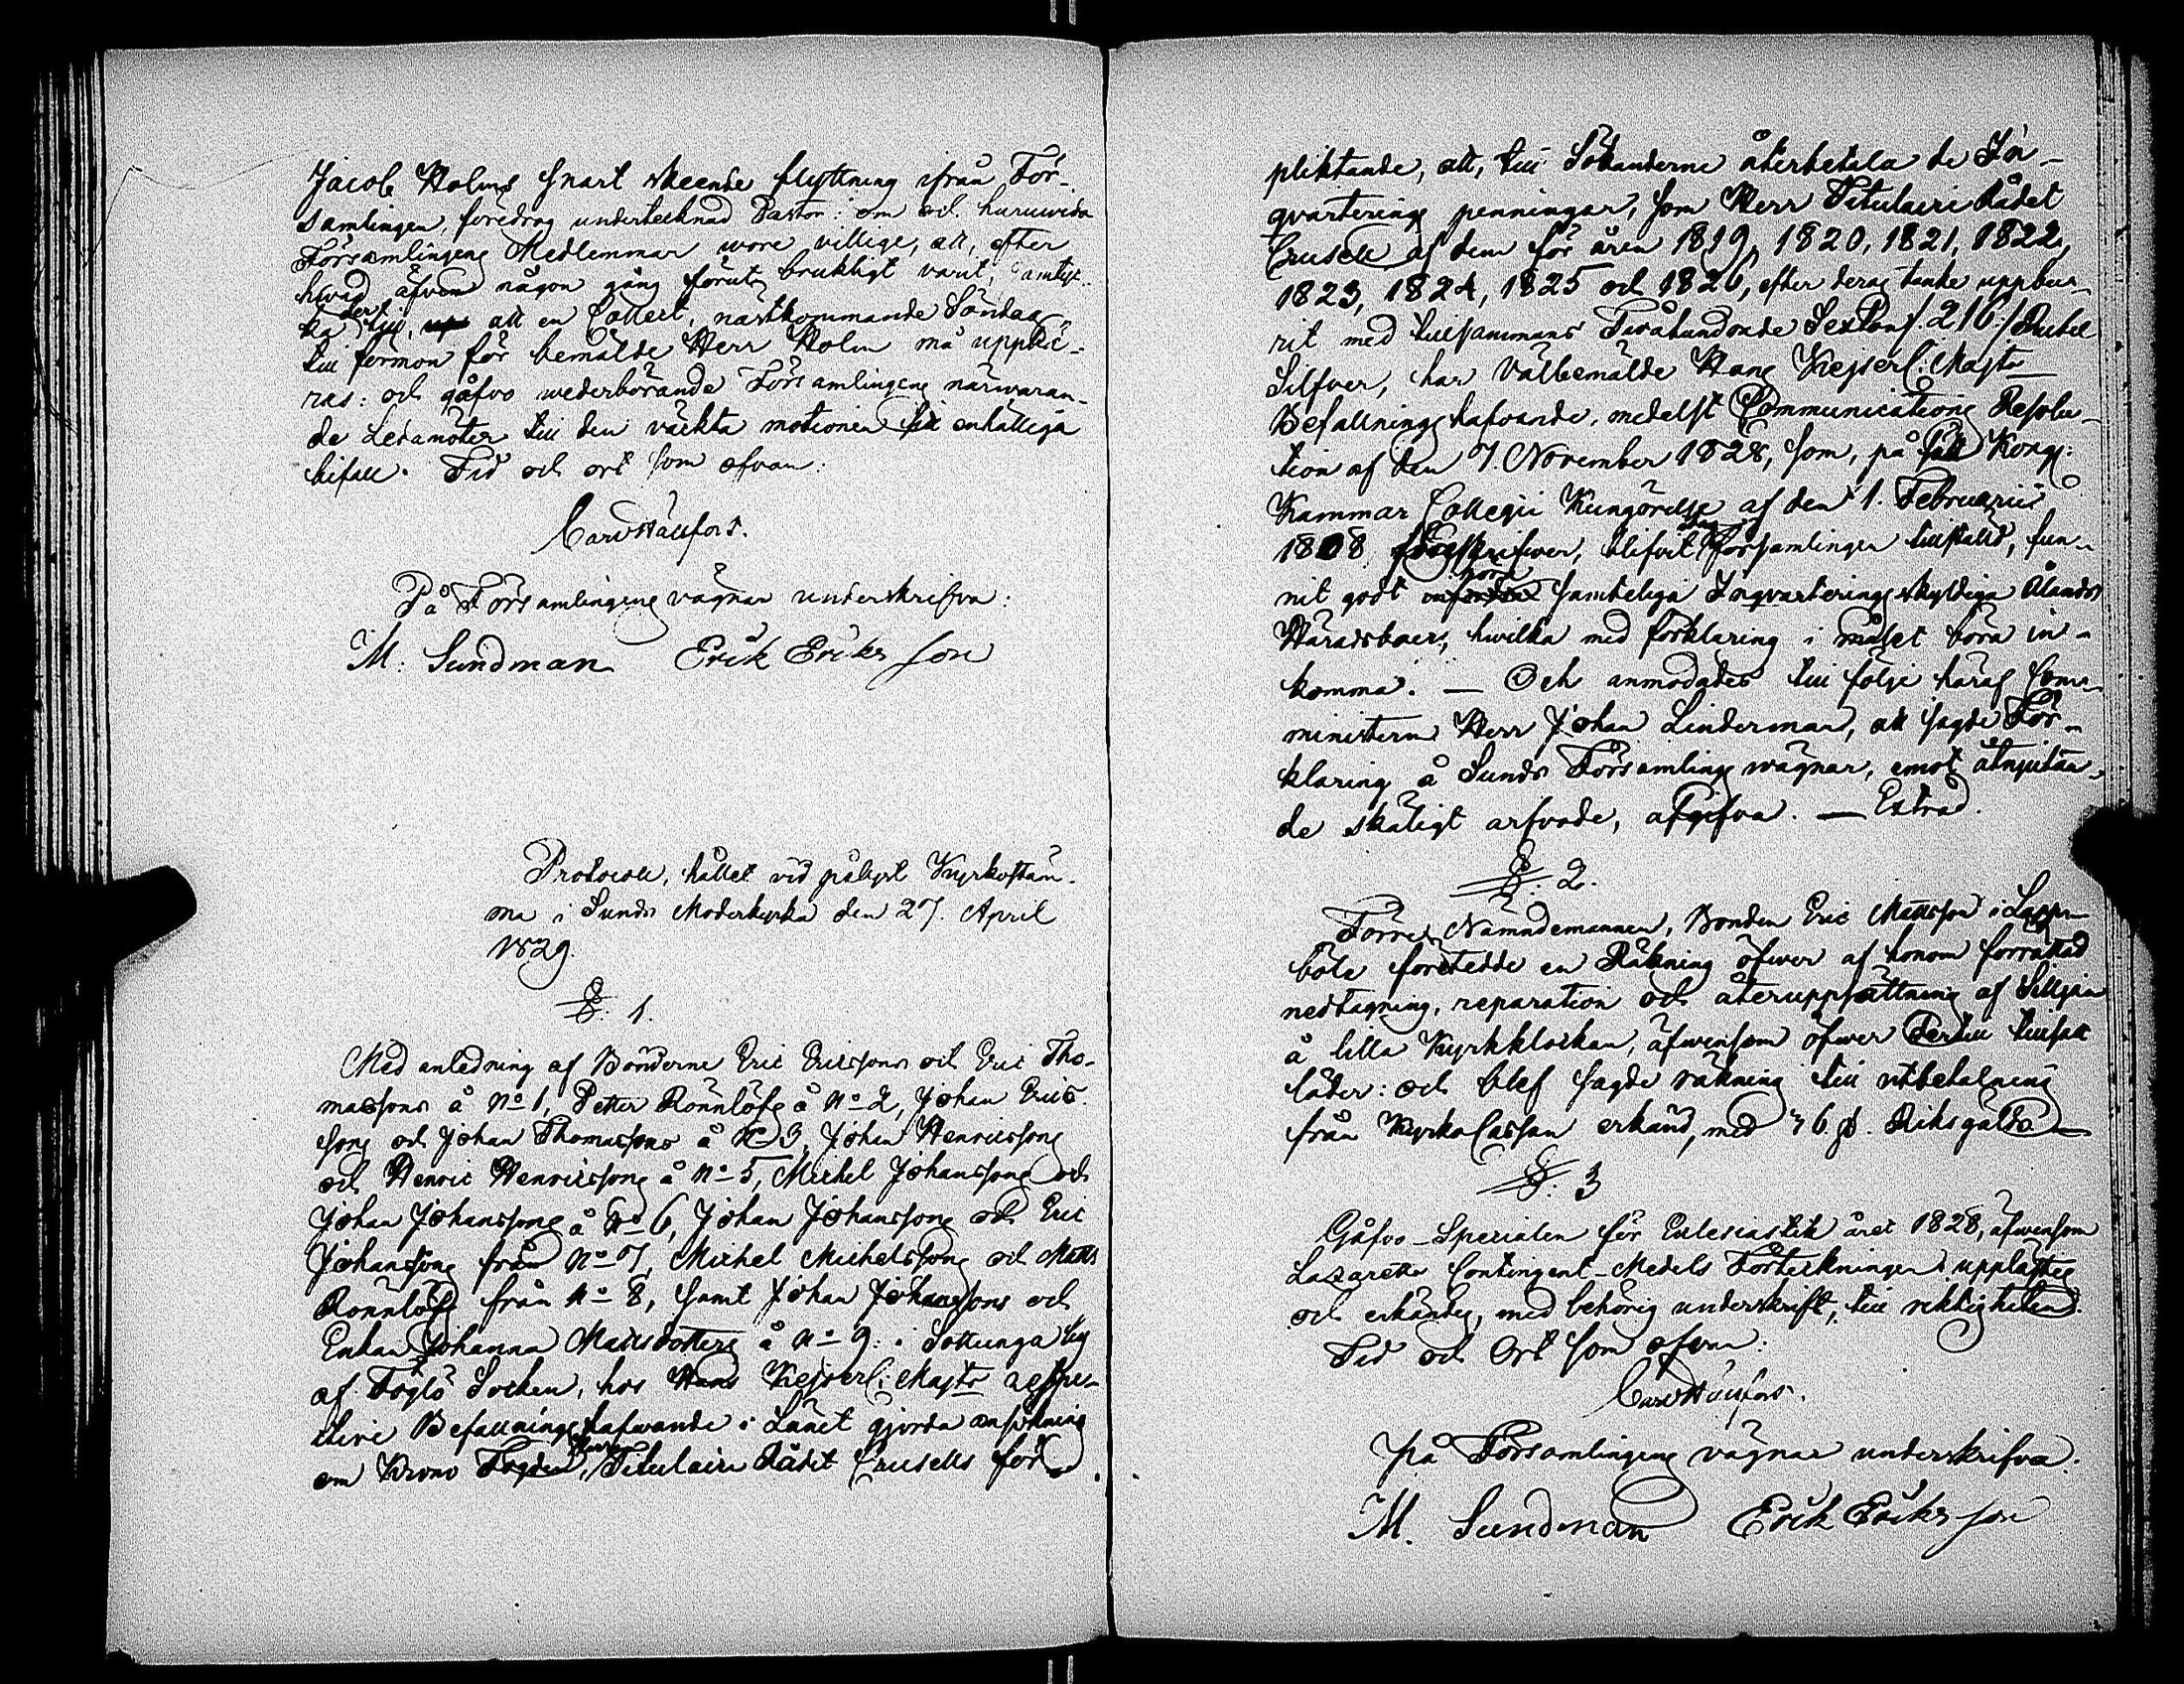 Jacob Holms snart skeende flyttning ifrån För-
samlingen, föredrog undertecknad Pastor: om och huruvida
Församlingens Medlemmar wore villige, att, efter
hwad äfven någon gång förut brukligt varit, samtyc-
ka dertill, att en Collect, nästkommande Söndag
till förmon för bemälde Herr Holm må uppbä-
ras: och gåfvo wederbörande Församlingens närwaran-
de Ledamöter till den väckta motionen sitt enhälliga
bifall. Tid och ort som ofvan.
Carl Hällfors.
På Församlingens vägnar underskrifva:
M: Sundman Erik Eriksson
Protocoll, hållet vid pålyst Kyrkostäm-
ma i Sunds Moderkyrka den 27. April
1829.
§. 1.
Med anledning af Bönderne Eric Ericssons och Eric Tho-
massons å No 1, Petter Rönnlöfs å No 2, Johan Erics-
sons och Johan Thomassons å No 3, Johan Henricssons
och Henric Henricssons å No 5, Michel Johanssons och
Johan Johanssons å No 6, Johan Johanssons och Eric
Johanssons från No 7, Michel Michelssons och Matts
Rönnlöfs från No 8, samt Johan Johanssons och
Enkan Johanna Mattsdotters å No 9: i Sottunga by
af Föglö Socken, hos Hans Kejserl: Majts respec-
tive Befallningshafwande i Länet gjorda ansökning
om Krono Fogden, Herr Titulaire Rådet Crusells för-
pliktande, att, till Sökanderne återbetala de In-
qvarterings penningar, som Herr Titulaire Rådet
Crusell af dem för åren 1819, 1820, 1821, 1822,
1823, 1824, 1825 och 1826, efter deras tanke uppbu-
rit med tillsammans Tvåhundrade Sexton /: 216 :/ Rubel
Silfver, har Välbemälde Hans Kejserl: Majts
Befallningshafvande, medelst Communications Resolu-
tion af den 7. November 1828, som, på sätt Kongl:
Kammar Collegii Kungörelse af den 1. Februarii
1808 föreskrifwer, blifvit församlingen tillstäld, fun-
nit godt höra samteliga Inqvarteringsskyldiga Ålands
Häradsboer, hwilka med förklaring i målet böra in-
komma. — Och anmodades till följe häraf Com-
ministern Herr Johan Linderman, att sagde För-
klaring å Sunds Församlings wägnar, emot åtnjutan-
de skäligt arfvode, afgifva. — Extrad.
§. 2.
Förre Nämndemannen, Bonden Eric Mattsson i Lapp-
böle företedde en Räkning öfwer af honom förrättad
nedtagning, reparation och återuppsättning af Silljan
å lilla Kyrkklockan, äfwensom öfwer dertill tillsatt
läder: och blef sagde räkning till utbetalning
från KyrkoCassan erkänd, med 46 β. Riksgälds
§. 3
Gåfvo-Specialen för Eclesiastik året 1828, äfwensom
Lazaretts Contingent-Medels Förteckningen, upplästes
och erkändes, med behörig underskrift, till riktigheten.
Tid och Ort som ofvan:
Carl Hällfors.
På Församlingens vägnar underskrifva.
M. Sundman Erik Eriksson